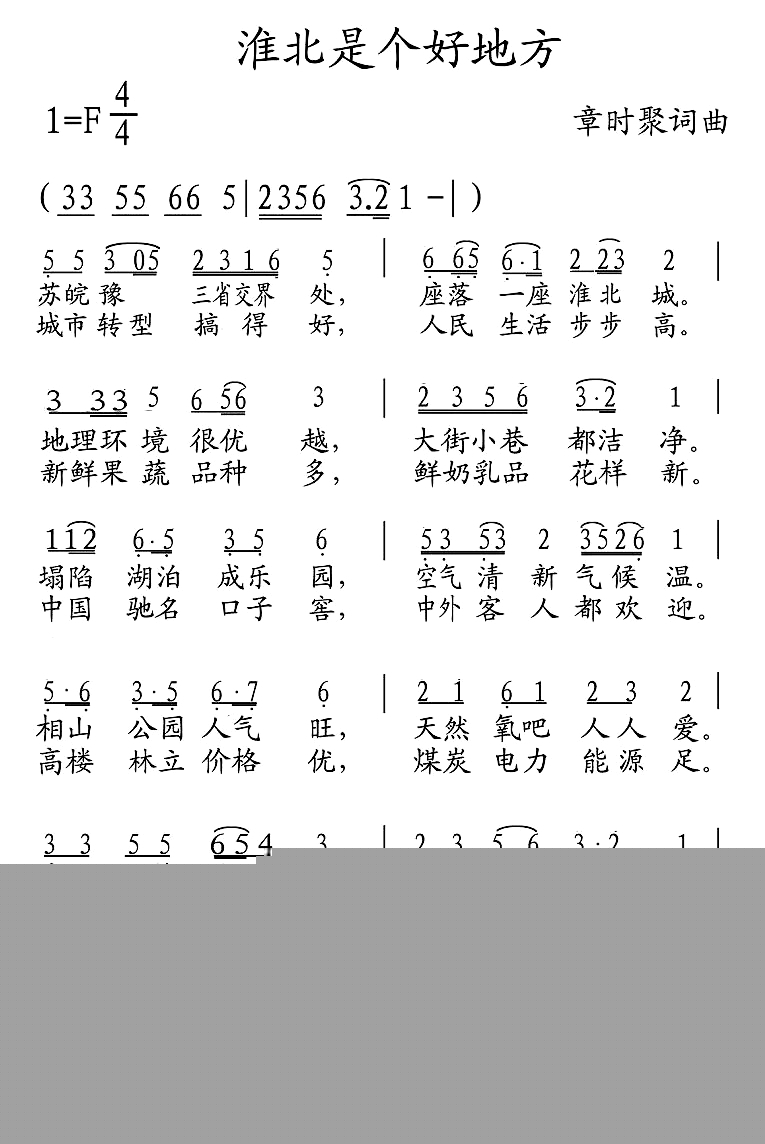 淮北是个好地方
1=F 4/4 章时聚词曲
( 33 55 66 5 | 2356 3.2 1 - | )
5 5 3 05 2 3 1 6 5 | 6 65 6·1 2 23 2 |
苏皖豫 三省交界 处, 座落 一座 淮北 城。
城市转型 搞得 好, 人民 生活 步步 高。
3 33 5 6 56 3 | 2 3 5 6 3·2 1 |
地理环境很优 越, 大街小巷 都洁 净。
新鲜果蔬品种 多, 鲜奶乳品 花样 新。
1 12 6·5 3 5 6 | 53 53 2 3526 1 |
塌陷 湖泊 成乐 园, 空气清新气候 温。
中国 驰名 口子 窖, 中外客人都欢 迎。
5·6 3·5 6·7 6 | 2 1 6 1 2 3 2 |
相山 公园人气 旺, 天然 氧吧 人人 爱。
高楼 林立价格 优, 煤炭 电力 能源 足。
3 3 5 5 6 5 4 3 | 2 3 5 6 3·2 1 |